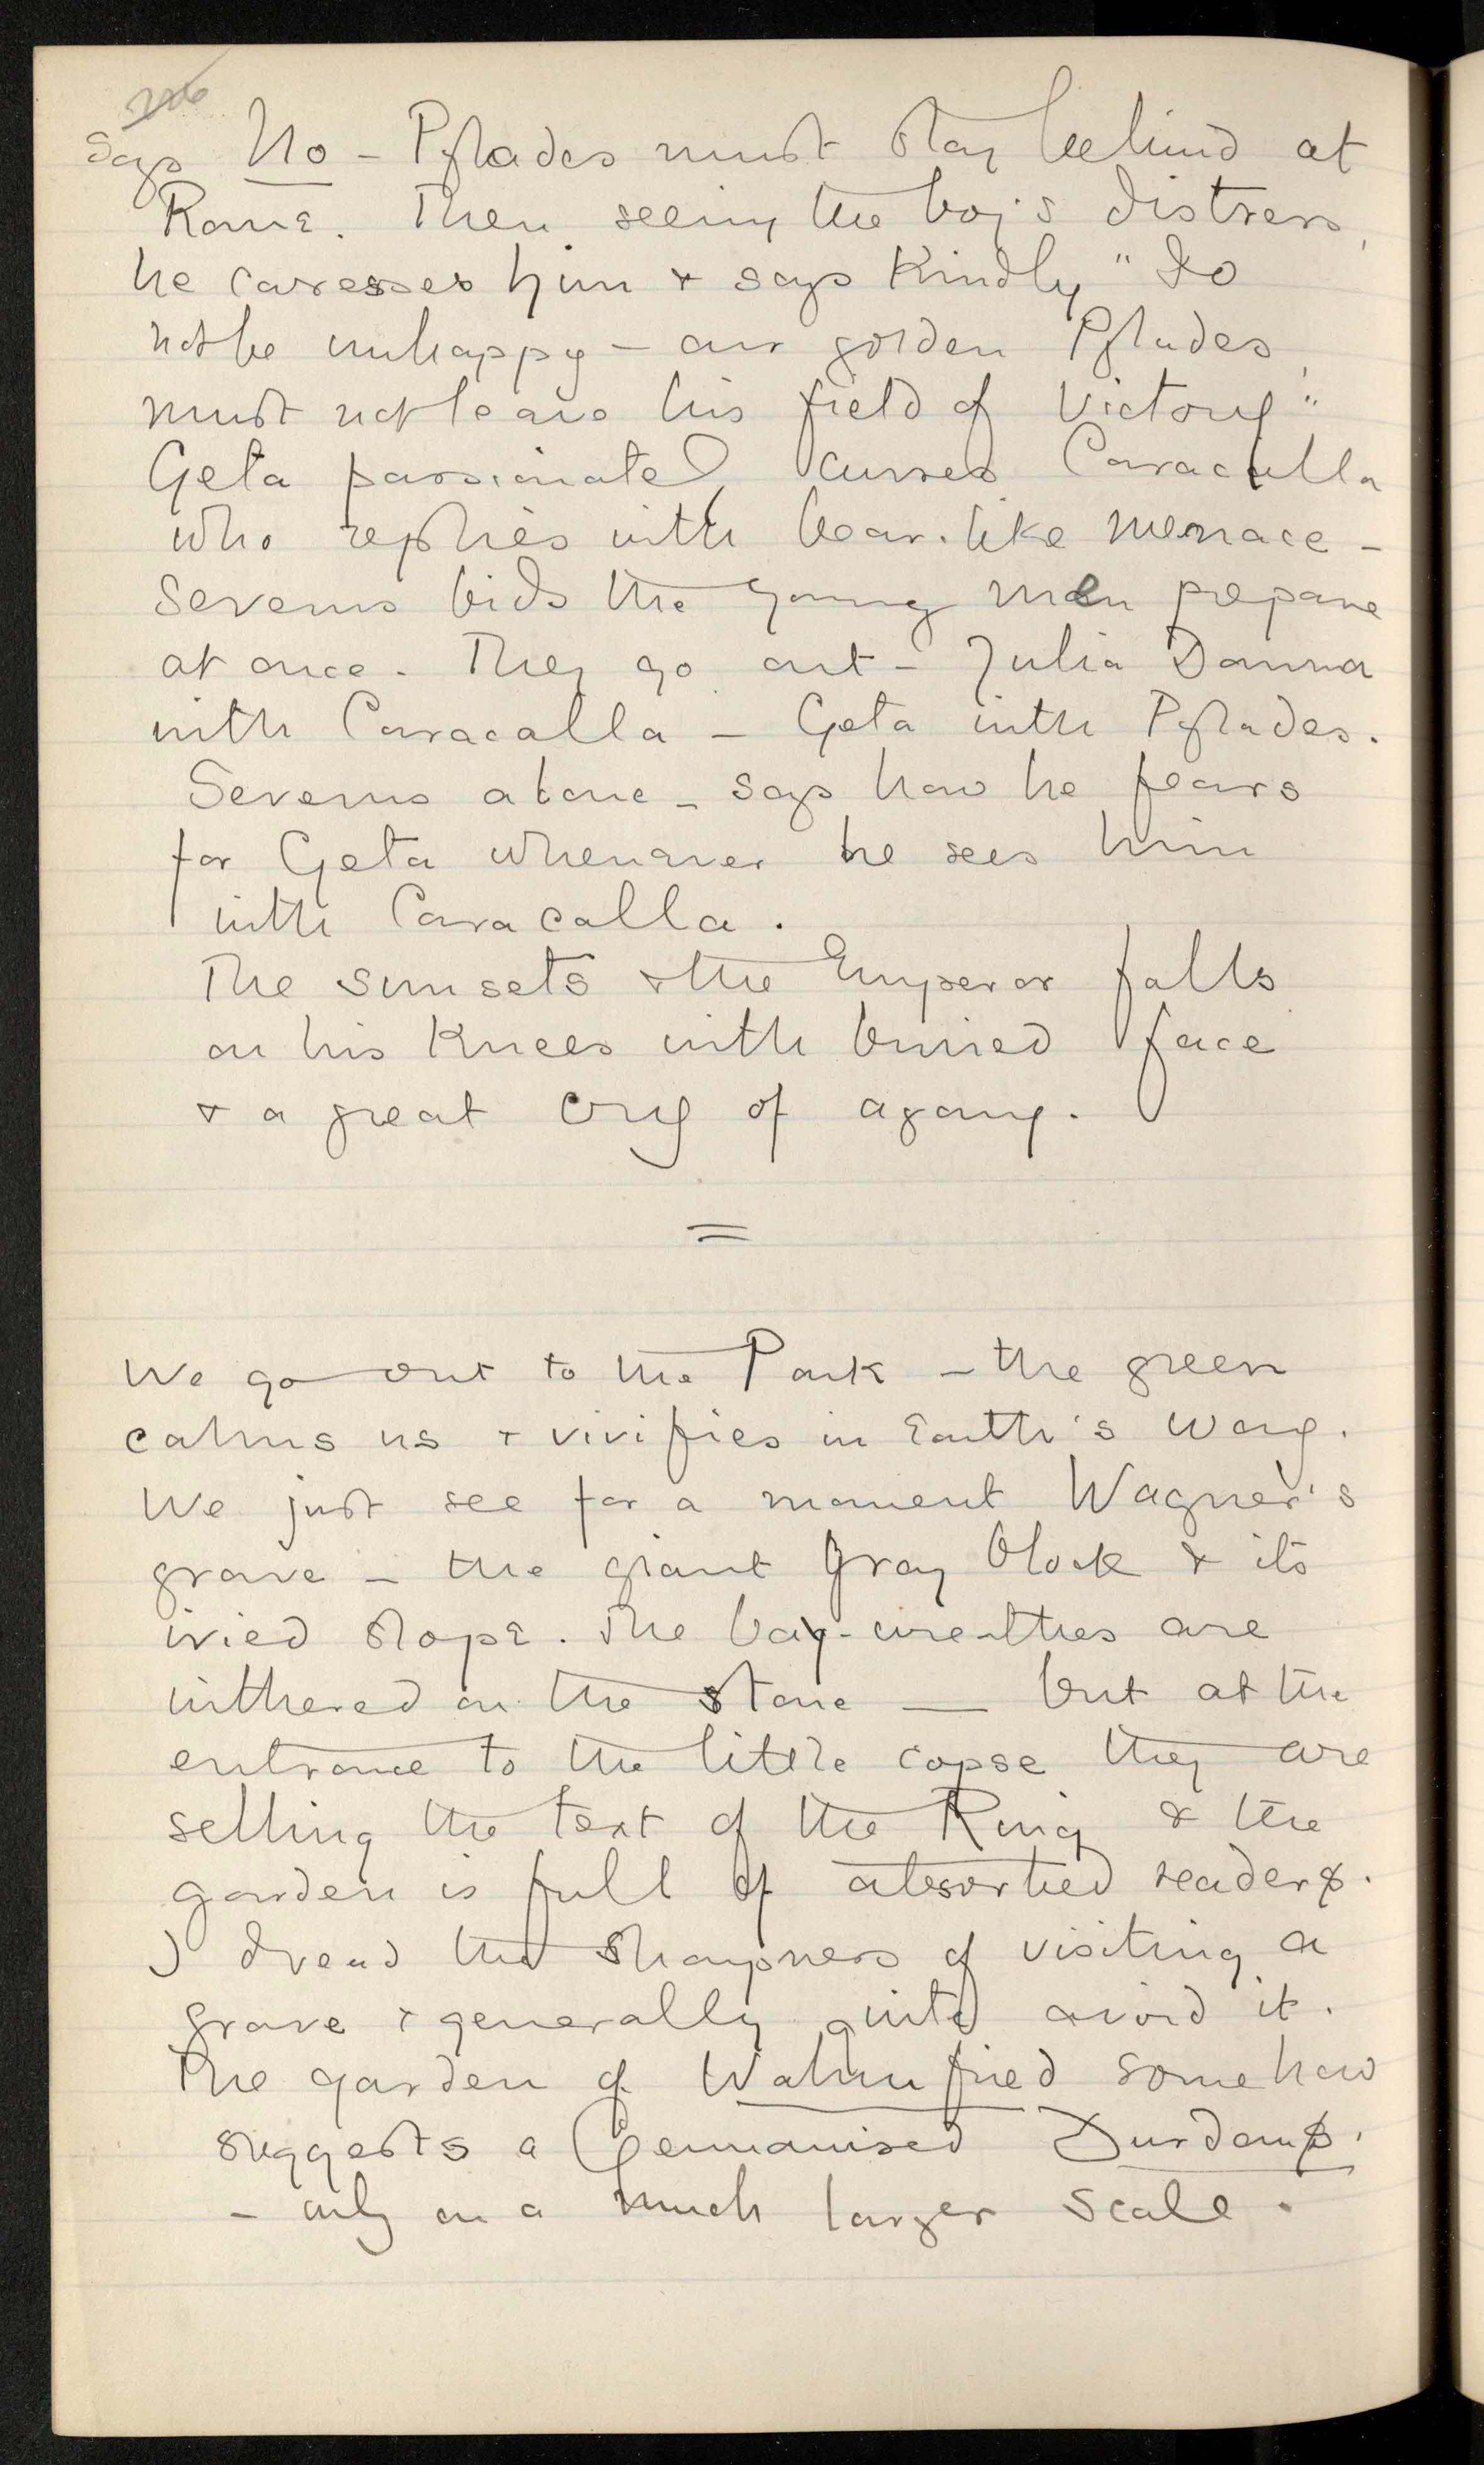 says No - Pylades must stay behind at
Rome. Then seeing the boy's distress,
he caresses him & says kindly "Do
not be unhappy - our golden Pylades,
must not leave his field of Victory"
Geta passionately curses Caracalla
who replies with bear-like menace -
Severus bids the young men prepare
at once. They go out - Julia Domna
with Caracalla - Geta with Pylades.
Severus alone - says how he fears
for Geta whenever he sees him
with Caracalla.
The sun sets & the Emperor falls
on his knees with buried face
& a great cry of agony.
=
We go out to the Park - the green
calms us & vivifies in Earth's way.
We just see for a moment Wagner's
grave - the giant gray block & its
ivied slope. The bay-wreathes are
withered on the stone — but at the
entrance to the little copse they are
selling the text of the Ring & the
garden is full of absorbed readers.
I dread the sharpness of visiting a
grave & generally quite avoid it.
The garden of Wahnfried somehow
suggests a Germanised Durdans,
- only on a much larger scale.